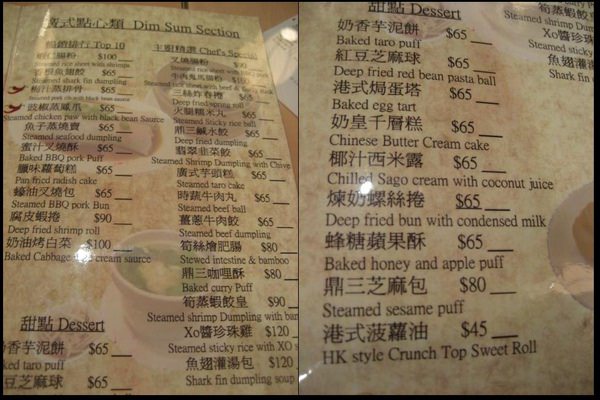 廣式點心類 Dim Sum Section
暢銷排行 Top 10
蝦仁腸粉 $100
Steamed rice sheet with shrimps
$65
Steamed shark fin dumpling
梅汁蒸排骨 $65
Steamed pork rib with black bean sauce
豉椒蒸鳳爪 $65
Steamed chicken paw with black bean Saurce
魚子蒸燒賣 $65
Steamed seafood dumpling
蜜汁叉燒酥 $65
Baked BBQ pork Puff
臘味蘿蔔糕 $65
Pan fried radish cake
蠔油叉燒包 $65
Steamed BBQ pork Bun
腐皮蝦捲 $90
Deep fried shrimp roll
奶油烤白菜 $100
Baked Cabbage with cream saurce
甜點 Dessert
奶香芋泥餅 $65
Baked taro puff
紅豆芝麻球 $65
主廚精選 Chef's Special
叉燒腸粉 $90
牛肉兔馬腸粉 $100
三絲炸春捲 $65
Deep fried spring roll
火腿糯米丸 $65
Steamed sticky rice ball
鼎三鹹水餃 $65
Deep fried dumpling
翡翠韭菜餃 $65
Steamed Shrimp Dumpling with Chive
廣式芋頭糕 $65
Steamed taro cake
時蔬牛肉丸 $65
Steamed beef ball
薑蔥牛肉餃 $65
Steamed beef dumpling
筍絲燴肥腸 $80
Stewed intestine & bamboo
鼎三咖哩酥 $80
Baked curry Puff
筍蒸蝦餃皇 $90
Steamed shrimp Dumpling with bam
Xo醬珍珠雞 $120
Steamed sticky rice with XO s
魚翅灌湯包 $120
Shark fin dumpling soup
甜點 Dessert
奶香芋泥餅 $65
Baked taro puff
紅豆芝麻球 $65
Deep fried red bean pasta ball
港式焗蛋塔 $65
Baked egg tart
奶皇千層糕 $65
Chinese Butter Cream cake
椰汁西米露 $65
Chilled Sago cream with coconut juice
煉奶螺絲捲 $65
Deep fried bun with condensed milk
蜂糖蘋果酥 $65
Baked honey and apple puff
鼎三芝麻包 $80
Steamed sesame puff
港式菠蘿油 $45
HK style Crunch Top Sweet Roll
筍蒸蝦餃
Steamed shrimp D
Xo醬珍
Steamed sticky
魚翅灌
Shark fin